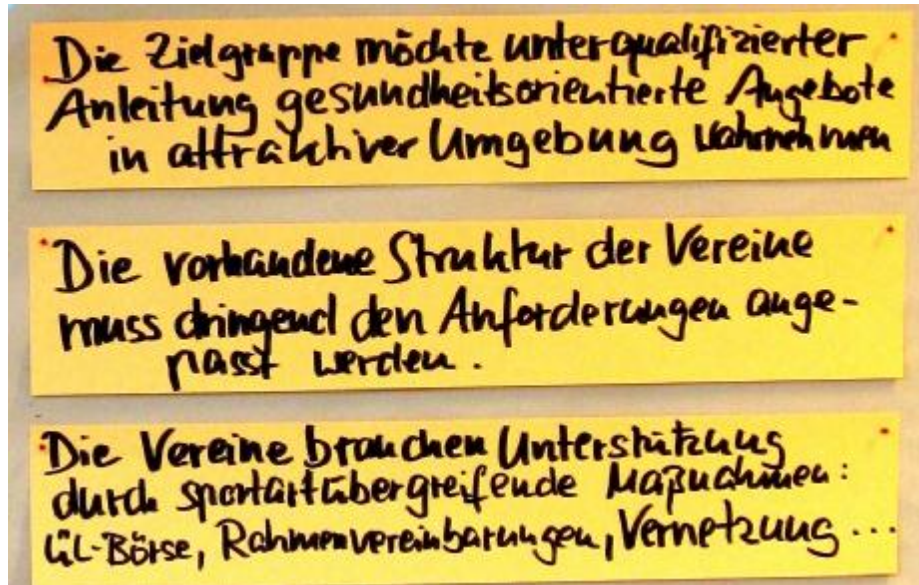 Die Zielgruppe möchte unter qualifizierter
Anleitung gesundheitsorientierte Angebote
in attraktiver Umgebung wahrnehmen
Die vorhandene Struktur der Vereine
muss dringend den Anforderungen ange-
passt werden.
Die Vereine brauchen Unterstützung
durch sportartübergreifende Maßnahmen:
ÜL-Börse, Rahmenvereinbarungen, Vernetzung...